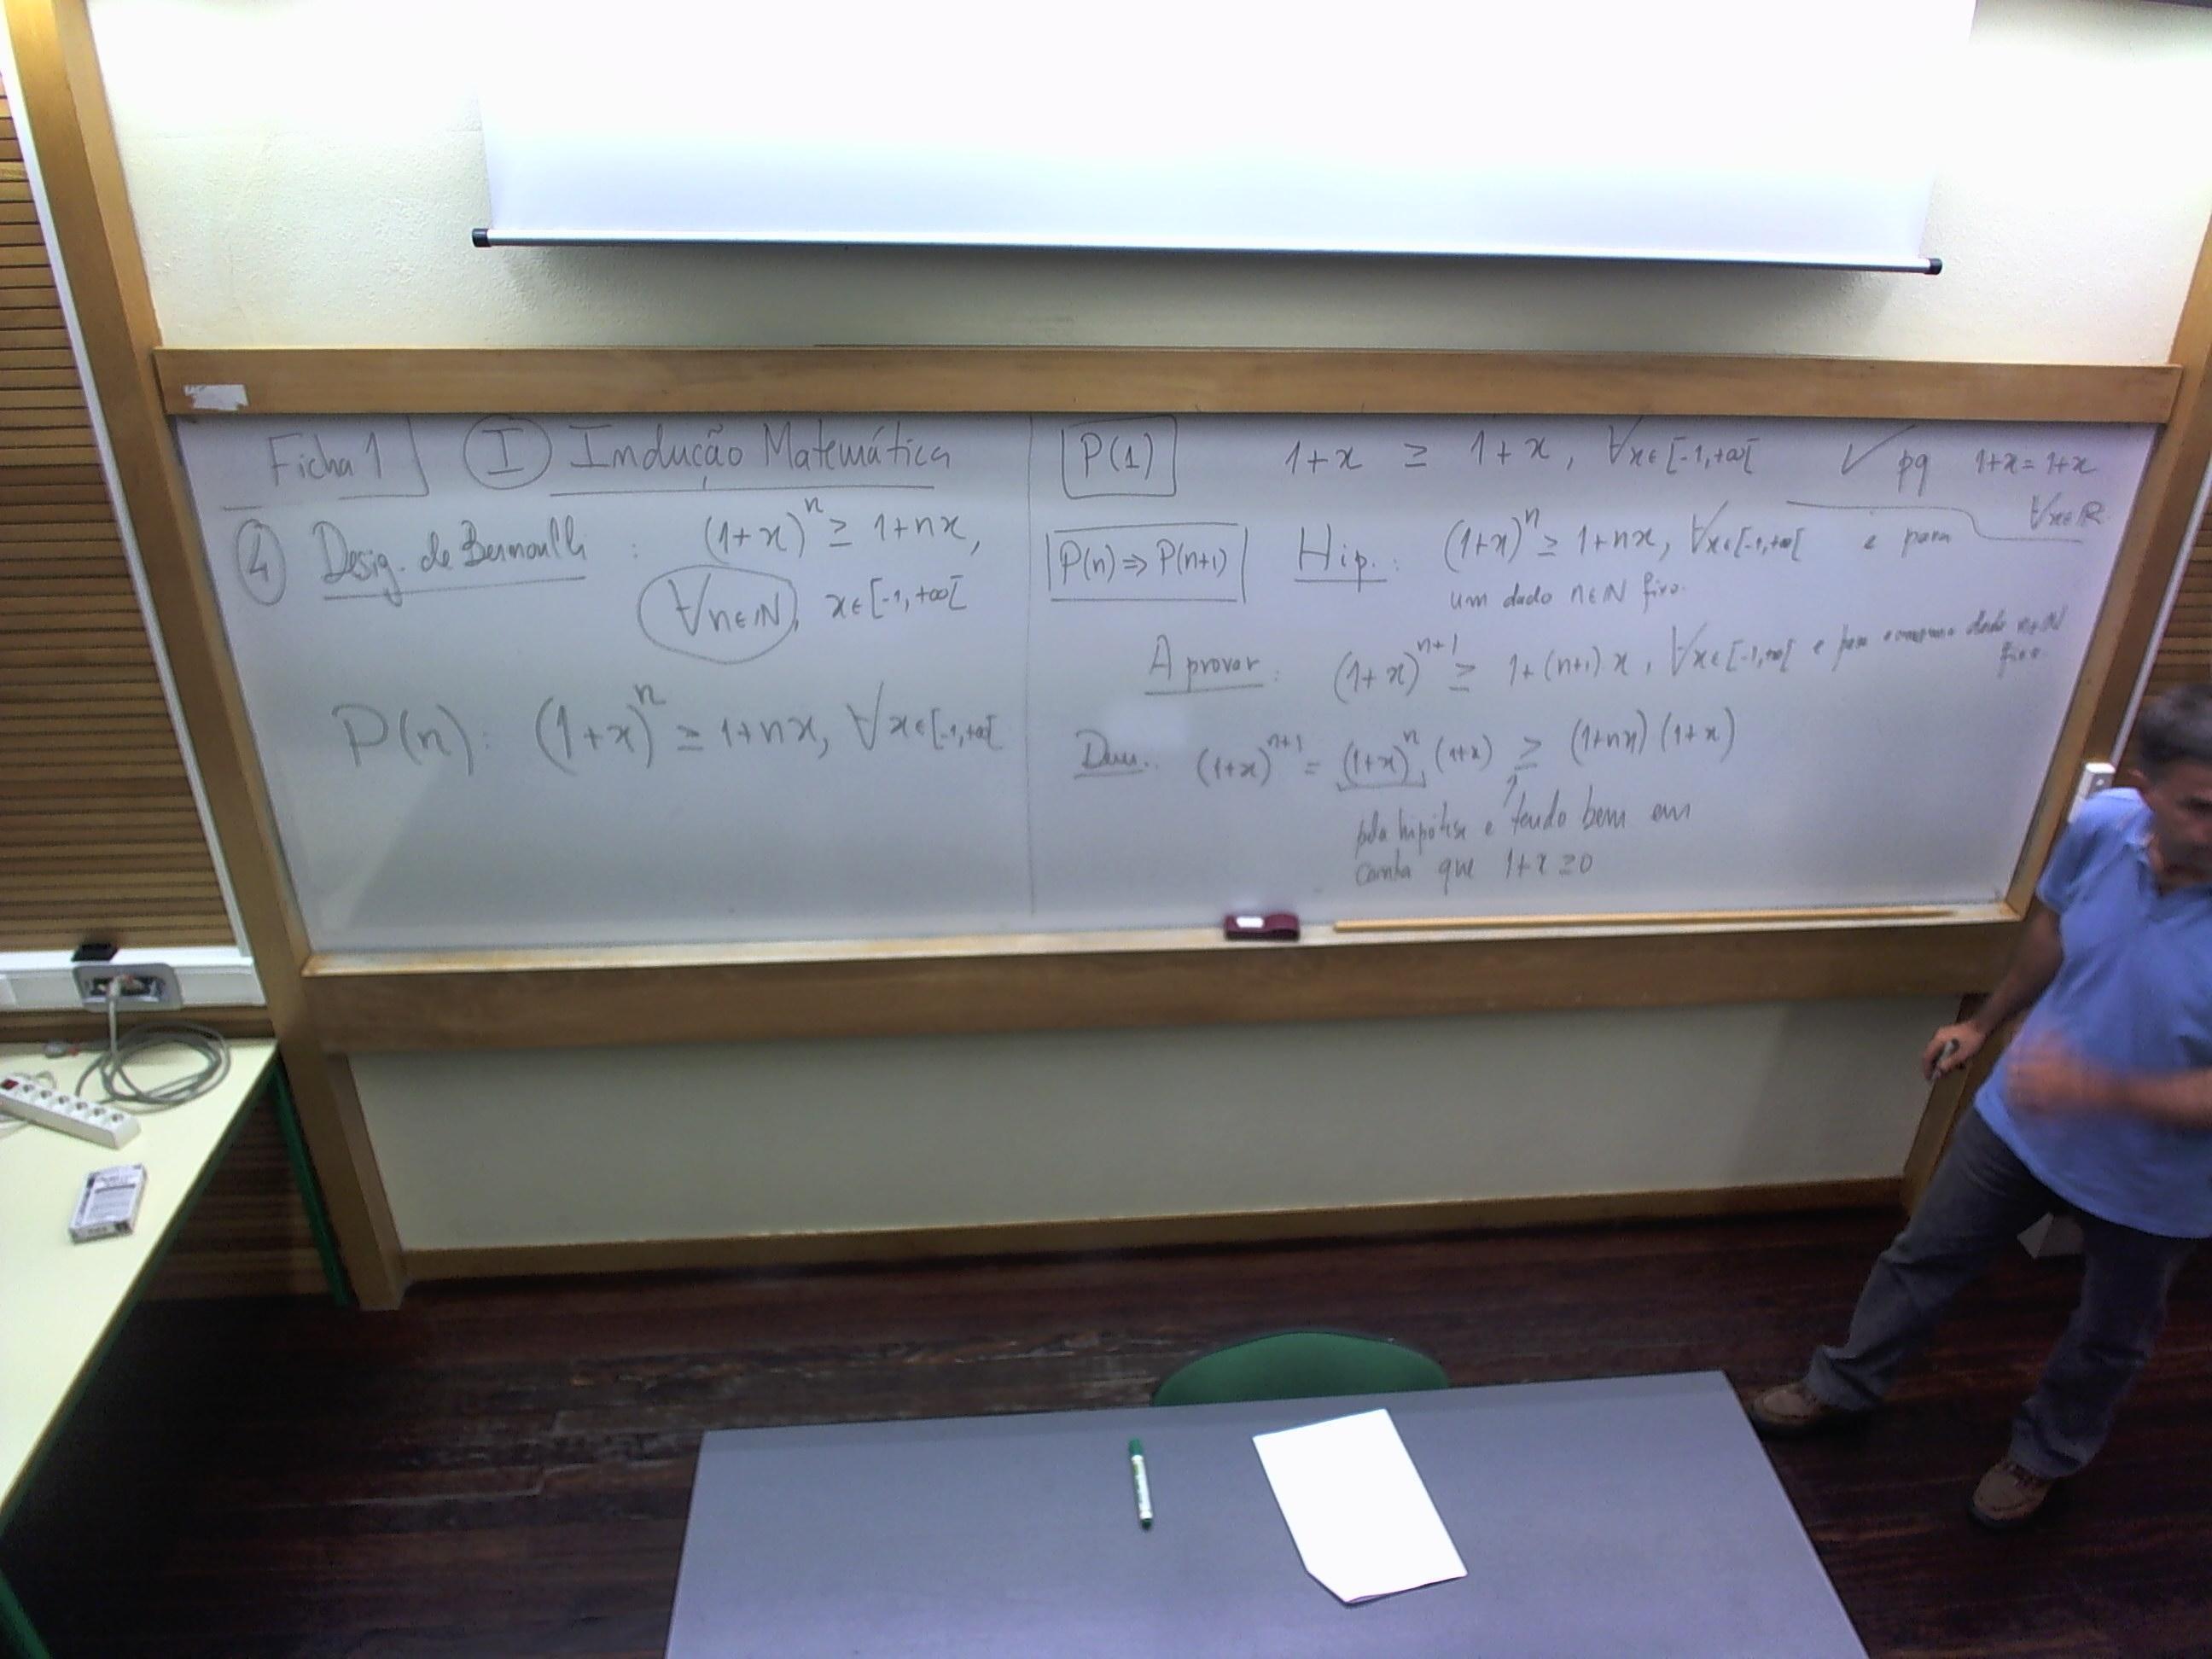 Ficha 1 I Indução Matemática
4 Desig. de Bernoulli : (1+x)^n ≥ 1+nx,
∀n∈ℕ, x∈[-1,+∞[
P(n): (1+x)^n ≥ 1+nx, ∀x∈[-1,+∞[
P(1) 1+x ≥ 1+x, ∀x∈[-1,+∞[ ✓ pq 1+x=1+x
∀x∈ℝ
P(n) ⇒ P(n+1) Hip.: (1+x)^n ≥ 1+nx, ∀x∈[-1,+∞[ e para
um dado n∈ℕ fixo.
A provar: (1+x)^{n+1} ≥ 1+(n+1)x, ∀x∈[-1,+∞[ e para o mesmo dado n∈ℕ
fixo
Dem.: (1+x)^{n+1} = (1+x)^n (1+x) ≥ (1+nx)(1+x)
↑
pela hipótese e tendo bem em
conta que 1+x ≥ 0